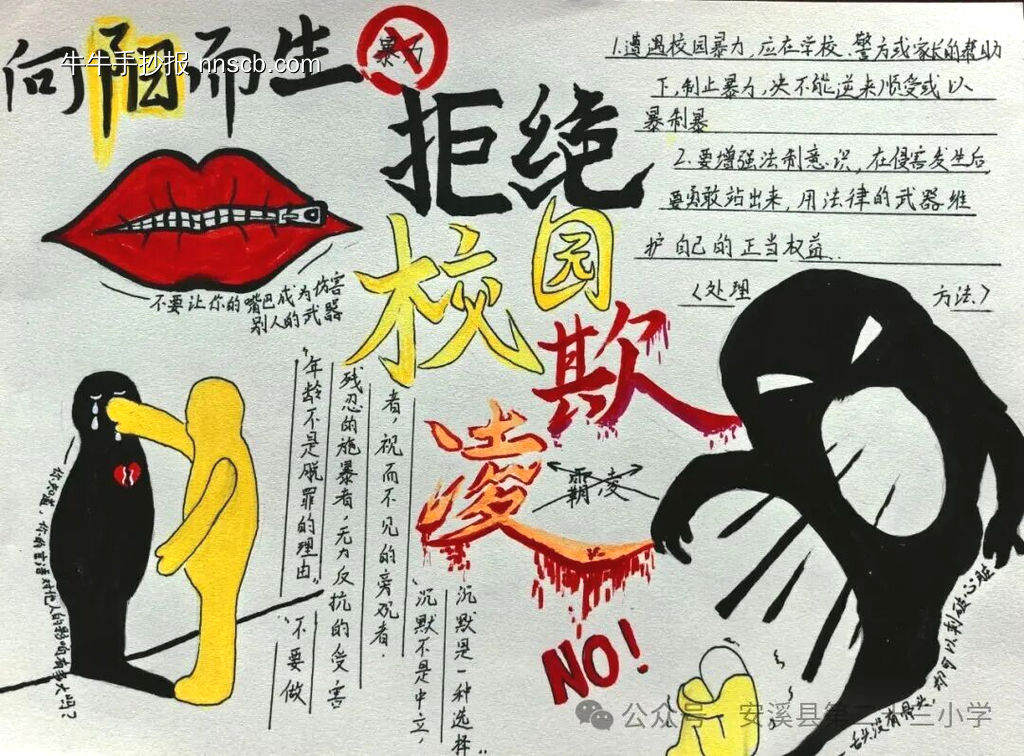 向阳而生
牛牛手抄报 nnscb.com
暴力
拒绝
校园
欺
凌
霸凌
NO!
1.遭遇校园暴力,应在学校、警方或家长的帮助
下,制止暴力,决不能逆来顺受或以
暴制暴
2.要增强法制意识,在侵害发生后,
要勇敢站出来,用法律的武器维
护自己的正当权益.
〈处理方法.〉
不要让你的嘴巴成为伤害
别人的武器
你知道,你的言语对他人的影响有多大吗?
"年龄不是脱罪的理由"
"不要做
残忍的施暴者,无力反抗的受害
者,视而不见的旁观者.
"沉默不是中立,
沉默是一种选择"
舌头没有骨头,却可以刺破心脏
公众号·安溪县第二十三小学